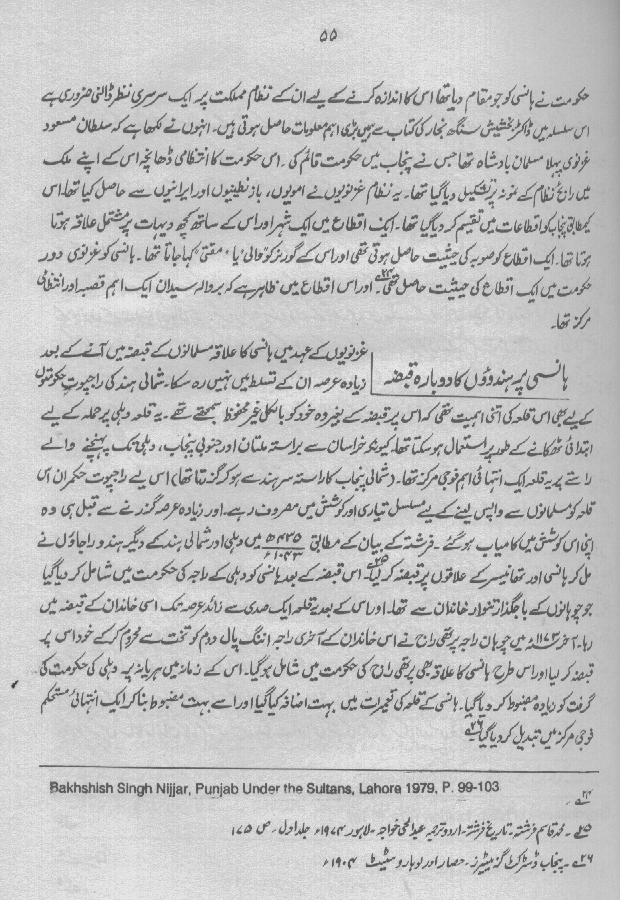 ۵۵
حکومت نے ہانسی کو جو مقام دیا تھا اس کا اندازہ کرنے کے لیے ان کے نظام مملکت پر ایک سرسری نظر ڈالنی ضروری ہے
اس سلسلہ میں ڈاکٹر بخشیش سنگھ نجار کی کتاب سے ہمیں بڑی اہم معلومات حاصل ہوتی ہیں۔ انہوں نے لکھا ہے کہ سلطان مسعود
غزنوی پہلا مسلمان بادشاہ تھا جس نے پنجاب میں حکومت قائم کی۔ اس حکومت کا انتظامی ڈھانچہ اس کے اپنے ملک
میں رائج نظام کے نمونہ پر تشکیل دیا گیا تھا۔ یہ نظام غزنویوں نے امویوں، بازنطینیوں اور ایرانیوں سے حاصل کیا تھا۔ اس
کیمطابق پنجاب کو اقطاعات میں تقسیم کر دیا گیا تھا۔ ایک اقطاع میں ایک شہر اور اس کے ساتھ کچھ دیہات پر مشتمل علاقہ ہوتا
ہوتا تھا۔ ایک اقطاع کو صوبہ کی حیثیت حاصل ہوتی تھی اور اس کے گورنر کو 'والی' یا 'مفتی' کہا جاتا تھا۔ ہانسی کو غزنوی دور
حکومت میں ایک اقطاع کی حیثیت حاصل تھی۔۲۴؎ اور اس اقطاع میں ظاہر ہے کہ بروالہ سیدان ایک اہم قصبہ اور انتظامی
مرکز تھا۔
ہانسی پر ہندوؤں کا دوبارہ قبضہ
غزنویوں کے عہد میں ہانسی کا علاقہ مسلمانوں کے قبضہ میں آنے کے بعد
زیادہ عرصہ ان کے تسلط میں نہیں رہ سکا۔ شمالی ہند کی راجپوت حکومتوں
کے لیے بھی اس قلعہ کی اتنی اہمیت تھی کہ اس پر قبضہ کے بغیر وہ خود کو بالکل غیر محفوظ سمجھتے تھے۔ یہ قلعہ دہلی پر حملہ کے لیے
ابتدائی ٹھکانے کے طور پر استعمال ہو سکتا تھا۔ کیونکہ خراسان سے براستہ ملتان اور جنوبی پنجاب، دہلی تک پہنچنے والے
راستے پر یہ قلعہ ایک انتہائی اہم فوجی مرکز تھا۔ (شمالی پنجاب کا راستہ سرہند سے ہو کر گزرتا تھا) اس لیے راجپوت حکمران اس
قلعہ کو مسلمانوں سے واپس لینے کے لیے مسلسل تیاری اور کوشش میں مصروف رہے۔ اور زیادہ عرصہ گزرنے سے قبل ہی وہ
اپنی اس کوشش میں کامیاب ہو گئے۔ فرشتہ کے بیان کے مطابق ۴۳۵ھ / ۱۰۴۳ء میں دہلی اور شمالی ہند کے دیگر ہندو راجاؤں نے
مل کر ہانسی اور تھانیسر کے علاقوں پر قبضہ کر لیا۔۲۵؎ اس قبضہ کے بعد ہانسی کو دہلی کے راجہ کی حکومت میں شامل کر دیا گیا
جو چوہانوں کے باجگذار تنوار خاندان سے تھا۔ اور اس کے بعد یہ قلعہ ایک صدی سے زائد عرصہ تک اسی خاندان کے قبضہ میں
رہا۔ آخر ۱۱۷۳ء میں چوہان راجہ پرتھی راج نے اس خاندان کے آخری راجہ اننگ پال دوم کو تخت سے محروم کر کے خود اس پر
قبضہ کر لیا اور اس طرح ہانسی کا علاقہ بھی پرتھی راج کی حکومت میں شامل ہو گیا۔ اس کے زمانہ میں ہریانہ پر دہلی کی حکومت کی
گرفت کو زیادہ مضبوط کر دیا گیا۔ ہانسی کے قلعہ کی تعمیرات میں بہت اضافہ کیا گیا اور اسے بہت مضبوط بنا کر ایک انتہائی مستحکم
فوجی مرکز میں تبدیل کر دیا گیا۔۲۶؎
۲۴؎ Bakhshish Singh Nijjar, Punjab Under the Sultans, Lahora 1979, P. 99-103
۲۵؎۔ محمد قاسم فرشتہ۔ تاریخ فرشتہ۔ اردو ترجمہ عبدالحی خواجہ۔ لاہور ۱۹۷۴ء جلد اول۔ ص ۱۷۵
۲۶؎۔ پنجاب ڈسٹرکٹ گزیٹیئرز۔ حصار اور لوہارو سٹیٹ ۱۹۰۴ء